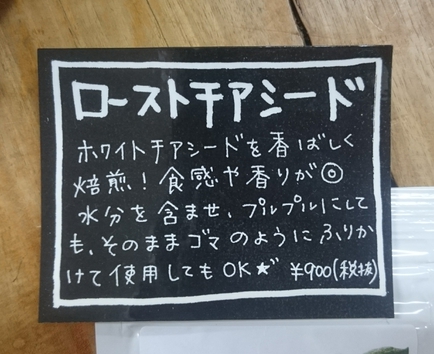 ローストチアシード
ホワイトチアシードを香ばしく
焙煎！食感や香りが◎
水分を含ませ、プルプルにして
も、そのままゴマのようにふりか
けて使用してもOK★ ¥900(税抜)